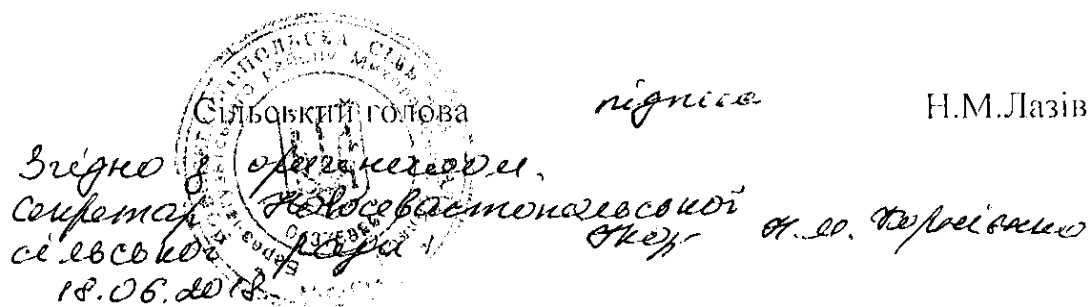 Сільський голова підпис Н.М.Лазів
Згідно з оригіналом.
Секретар Новосевастопольської
сільської ради Н.М.
18.06.2018